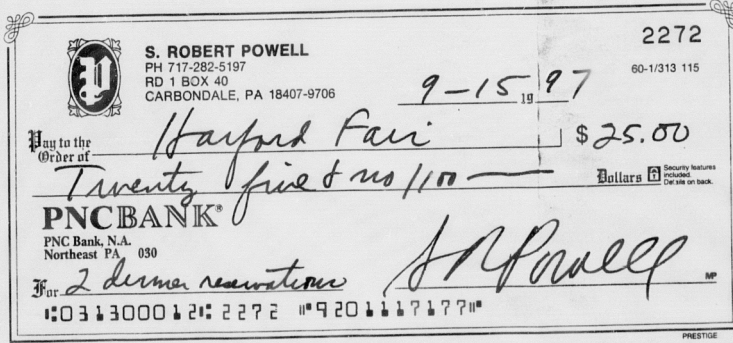 2272
S. ROBERT POWELL
PH 717-282-5197
RD 1 BOX 40
CARBONDALE, PA 18407-9706
60-1/313 115
9-15 19 97
Pay to the Order of Harford Fair $ 25.00
Twenty five & no/100 Dollars
Security features included. Details on back.
PNCBANK®
PNC Bank, N.A.
Northeast PA 030
For 2 dinner reservations
S R Powell
MP
⑆031300012⑆ 2272 ⑈9201117177⑈
PRESTIGE